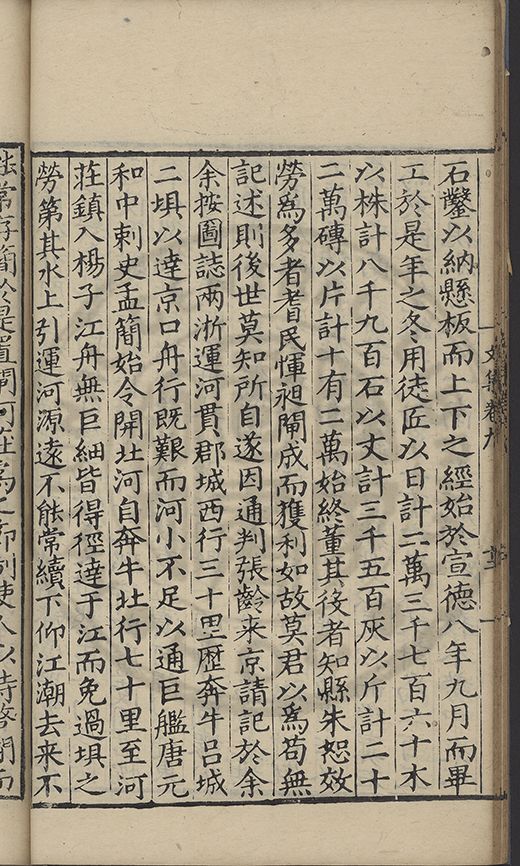 石鑿以納懸板而上下之經始於宣德八年九月而畢
工於是年之冬用徒匠以日計二萬三千七百六十木
以株計八千九百石以丈計三千五百灰以斤計二十
二萬磚以片計十有二萬始終董其役者知縣朱恕效
勞為多者耆民惲昶閘成而獲利如故莫君以為苟無
記述則後世莫知所自遂因通判張齡来京請記於余
余按圖誌兩浙運河貫郡城西行三十里歷奔牛呂城
二埧以達京口舟行既艱而河小不足以通巨艦唐元
和中刺史孟簡始令開北河自奔牛北行七十里至河
莊鎮入楊子江舟無巨細皆得徑達于江而免過埧之
勞第其水上引運河源遠不能常續下仰江潮去来不
文集卷九